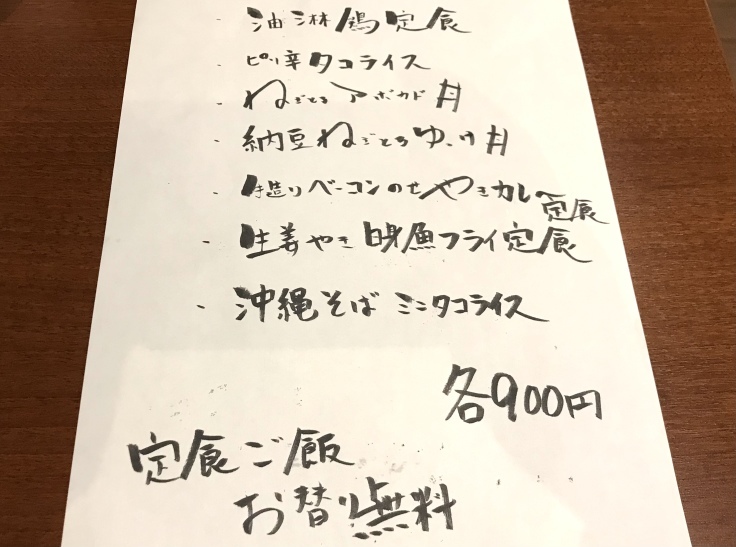 ・油淋鶏定食
・ピリ辛タコライス
・ねぎとろアボカド丼
・納豆ねぎとろゆっけ丼
・手造りベーコンのせやきカレー定食
・生姜やき白身魚フライ定食
・沖縄そばミニタコライス
各900円
定食ご飯
お替り無料